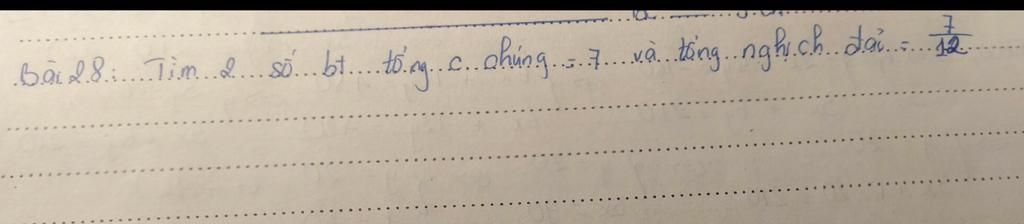 Bài 28: Tìm 2 số bt tổng c chúng = 7 và tổng nghịch đảo = 7/12